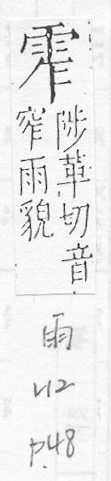 陟革切音
窄雨貌
雨
p.48